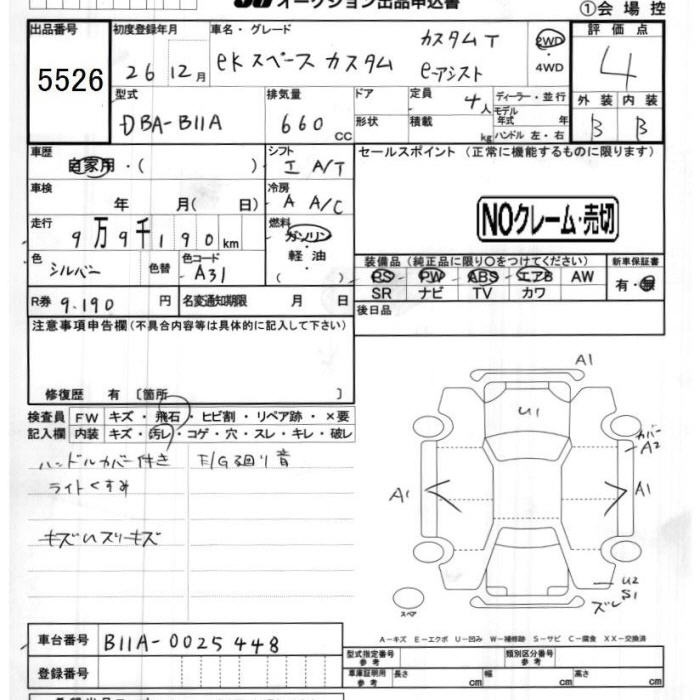 オークション出品申込書
①会場控
出品番号
5526
初度登録年月
26 12月
車名・グレード
eKスペース カスタム
カスタム T
e-アシスト
2WD
4WD
評価点
4
外装 内装
B B
型式
DBA-B11A
排気量
660 CC
ドア
形状
定員 4人
積載 kg
ディーラー・並行
モデル年式 年
ハンドル 左・右
車歴
自家用・( )
シフト
I A/T
セールスポイント (正常に機能するものに限ります)
車検
年 月( 日)
冷房
A A/C
NOクレーム・売切
走行
9万9千190km
燃料
ガソリン
軽・油
( )
色
シルバー
色替
色コード
A31
装備品(純正品に限り○をつけてください)
PS PW ABS エアB AW
SR ナビ TV カワ
新車保証書
有・無
R券 9.190 円
名変通知期限 月 日
後日品
注意事項申告欄(不具合内容等は具体的に記入して下さい)
修復歴 有 〔箇所 〕
検査員記入欄
FW キズ・飛石・ヒビ割・リペア跡・×要
内装 キズ・汚レ・コゲ・穴・スレ・キレ・破レ
ハンドルカバー付き
E/G廻り音
ライトくすみ
キズUスリーキズ
A1
U1
カバー
A2
A1
A1
U2
S1
ズレ
スペア
A-キズ E-エクボ U-凹み W-補修跡 S-サビ C-腐食 XX-交換済
車台番号
B11A-0025448
登録番号
型式指定番号
参考
類別区分番号
参考
車庫証明用
参考
長さ cm
幅 cm
高さ cm